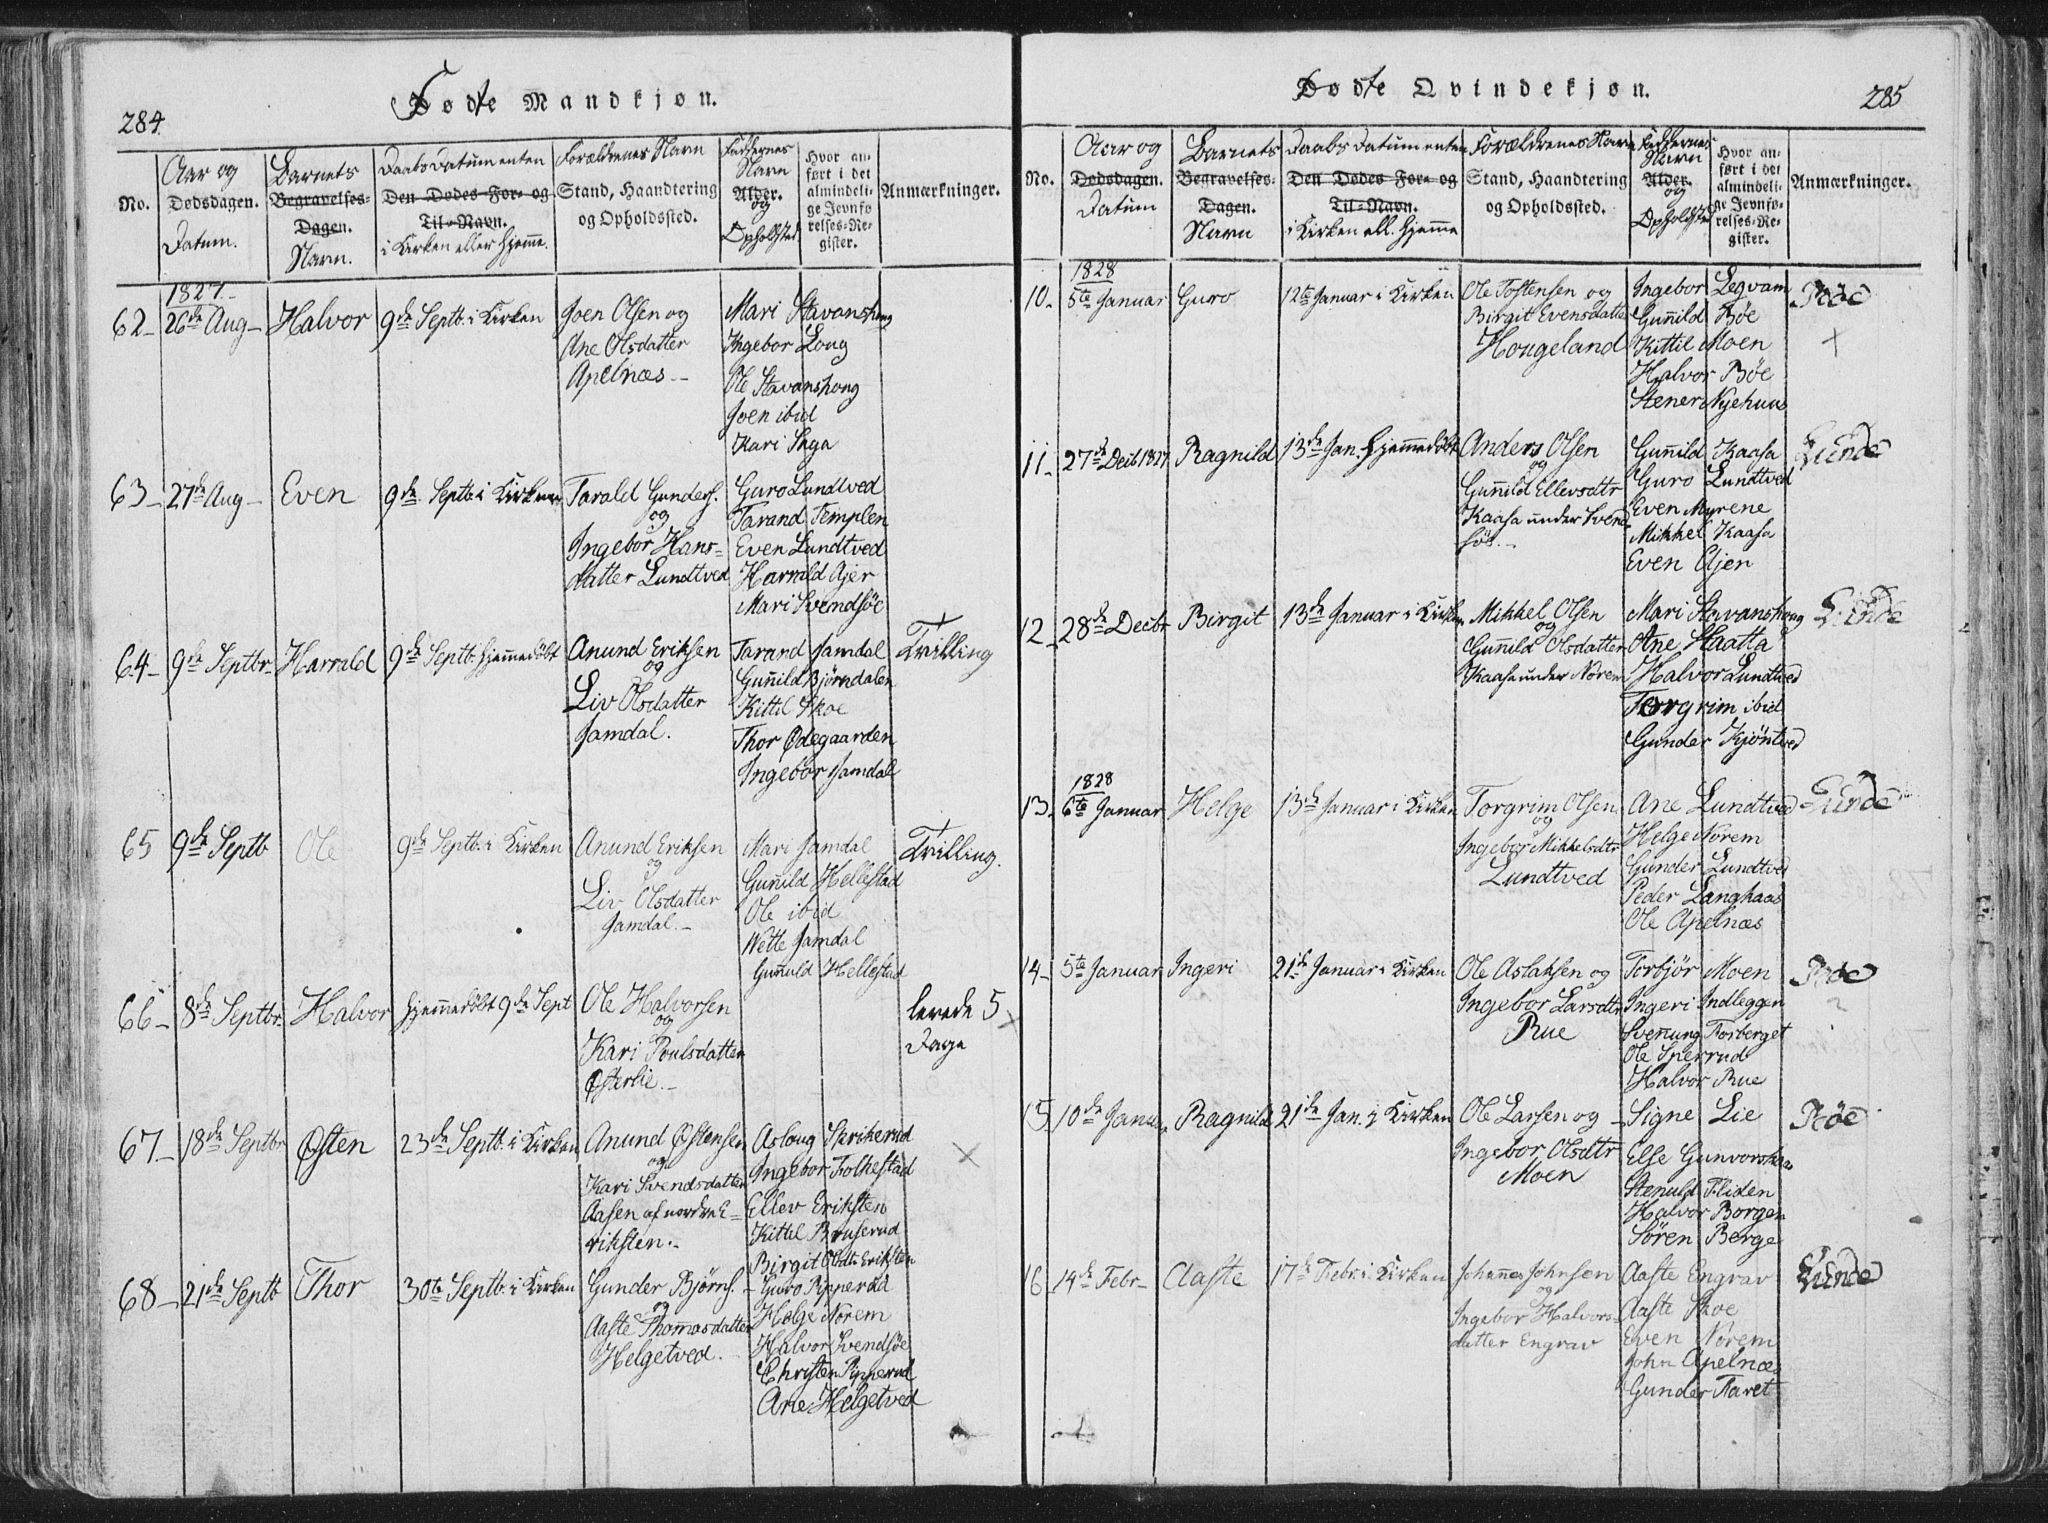 284.
Fødte Mandkjøn.
No.
Aar og
Dødsdagen.
Datum.
Barnets
Begravelses-
Dagen.
Navn.
Daabs Datum enten
Den Dødes For- og
Til-Navn.
i Kirken eller Hjemme.
Forældrenes Navn
Stand, Haandtering
og Opholdssted.
Faddernes
Navn
Alder.
og
Opholdsted
Hvor an-
ført i det
almindeli-
ge Jevnfø
relses-Re-
gister.
Anmærkninger.
1827
62 - 26de Aug - Halvor 9de Septb. i Kirken
Joen Olsen og
Ane Olsdatter
Apelnæs -
Mari Stavanshoug
Ingebor Loug
Ole Stavanshoug
Joen ibid
Kari Skga
63 - 27de Aug - Even 9de Septb i Kirken
Tarald Gunders.
og
Ingebor Hans-
datter Lundtved
Guro Lundtved
Tarand Templen
Even Lundtved
Harrild Ajer
Mari Svendsöe
64 - 9de Septbr. Harrald 9de Septb. hjemmedöbt
Anund Eriksen
og
Liv Olsdatter
Jamdal.
Tarand Jamdal
Guñild Björndalen
Kittil Skoe
Thor Ødegaarden
Ingebor Jamdal
+
Trilling
65 9de Septb Ole 9de Septb. i Kirken
Anund Eriksen
og
Liv Olsdatter
Jamdal. -
Mari Jamdal
Guñild Hellestad
Ole ibid
Nette Jamdal
Guñuld Hellestad
+
Trilling.
66 - 8de Septbr. Halvor hjemmedöbt 9de Sept
Ole Halvorsen
og
Kari Poulsdatter
Østerlie. -
levede 5
Dage
×
67 - 18de Septbr. Østen 23de Septb. i Kirken
Anund Østensen
og
Kari Svendsdatter
Aasen af nordre E-
riksten. -
Aslaug Sprikerud
Ingebor Folkestad
Ellev Eriksten
Kittel Bruserud
Birgit Olsdtr Eriksten
×
68 - 21de Septb Thor 30te Septb. i Kirken
Gunder Björns.
og
Aaste Thomasdatter
Helgetved.
- Guro Pipperud
Helge Norem
Halvor Svendsöe
Christen Pipperud
Ane Helgetved
285
Fødte Qvindekjøn.
No.
Aar og
Dødsdagen.
Datum
Barnets
Begravelses-
Dagen.
Navn
Daabs Datum enten
Den Dødes For- og
Til-Navn.
i Kirken ell. Hjemme
Forældrenes Navn
Stand, Haandtering
og Opholdssted.
Faddernes
Navn
Alder.
og
Opholdsted
Hvor an-
ført i det
almindeli-
ge Jevnfø-
relses-Re-
gister.
Anmærkninger.
1828
10 - 5te Januar Guro 12te Januar i Kirken
Ole Tostensen og
Birgit Evensdatter
Hougeland
Ingebor Legvam
Guñild Böe
Kittil Moen
Halvor Böe
Stener Nyehuus
Böe
×
11 - 27de Decb 1827 Ragnild 13de Jan. hjemmedöbt
Anders Olsen
og
Guñild Ellevsdtr
Kaasa under Svend
söe. -
Guñild Kaasa
Guro Lundtved
Even Myrene
Mikkel Kaasa
Even Ejen
Lunde
12 28de Decbr Birgit 13de Januar i Kirken
Mikkel Olsen
og
Guñild Olsdatter
Kaasa under Norem
Mari Stavanshoug
Ane Haatta
Halvor Lundtved
Torgrim ibid
Gunder Kjöntved
Lunde
1828
13 - 6te Januar Helge 13de Januar i Kirken
Torgrim Olsen
og
Ingebor Mikkelsdtr
Lundtved
Ane Lundtved
Helge Norem
Gunder Lundtved
Peder Langkaas
Ole Apelnæs
Lunde
14 - 5te Januar Ingeri 21de Januar i Kirken
Ole Aslaksen og
Ingebor Larsdtr
Rue
Torbjör Moen
Ingeri Indleggen
Svenung Forberget
Ole Sperrud
Halvor Rue
Böe
15 10de Janu. Ragnild 21de Jan. i Kirken
Ole Larsen og -
Ingebor Olsdtr
Moen
Signe Lie
Else Gunvorshaa
Stenuld Fliden
Halvor Borgen
Sören Berge
Böe
16 - 14de Febr - Aaste 17de Febr. i Kirken
Johannes Johnsen
og
Ingebor Halvors-
datter Engrav
Aaste Engrav
Aaste Skoe
Even Norem
John Apelnæs
Gunder Aaret
Lunde